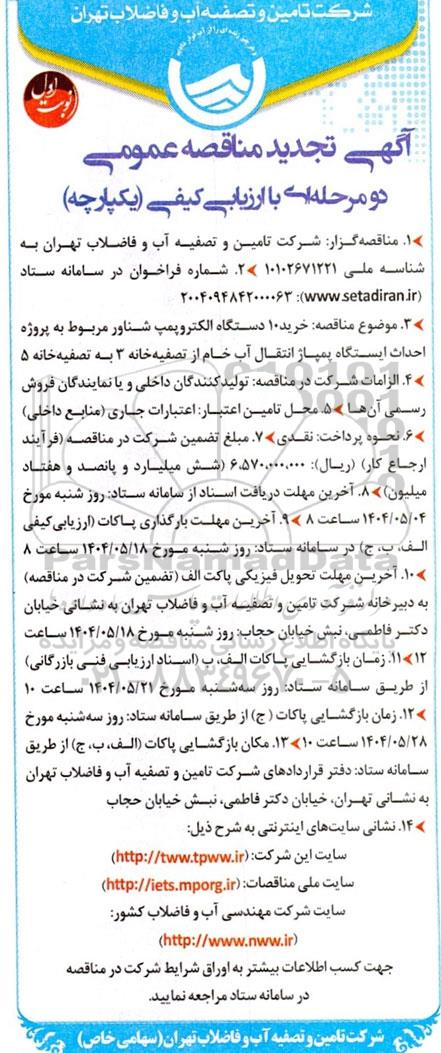 شرکت تامین و تصفیه آب و فاضلاب تهران
نوبت اول
آگهی تجدید مناقصه عمومی
دو مرحله‌ای با ارزیابی کیفی (یکپارچه)
۱. مناقصه‌گزار: شرکت تامین و تصفیه آب و فاضلاب تهران به
شناسه ملی ۱۰۱۰۲۶۷۱۲۲۱ ۲. شماره فراخوان در سامانه ستاد
(www.setadiran.ir): ۲۰۰۴۰۹۴۸۴۲۰۰۰۰۶۳
۳. موضوع مناقصه: خرید۱۰ دستگاه الکتروپمپ شناور مربوط به پروژه
احداث ایستگاه پمپاژ انتقال آب خام از تصفیه‌خانه ۳ به تصفیه‌خانه ۵
۴. الزامات شرکت در مناقصه: تولیدکنندگان داخلی و یا نمایندگان فروش
رسمی آن‌ها ۵. محل تامین اعتبار: اعتبارات جاری (منابع داخلی)
۶. نحوه پرداخت: نقدی ۷. مبلغ تضمین شرکت در مناقصه (فرآیند
ارجاع کار) (ریال): ۶،۵۷۰،۰۰۰،۰۰۰ (شش میلیارد و پانصد و هفتاد
میلیون) ۸. آخرین مهلت دریافت اسناد از سامانه ستاد: روز شنبه مورخ
۱۴۰۴/۰۵/۰۴ ساعت ۸ ۹. آخرین مهلت بارگذاری پاکات (ارزیابی کیفی
الف، ب، ج) در سامانه ستاد: روز شنبه مورخ ۱۴۰۴/۰۵/۱۸ ساعت ۸
۱۰. آخرین مهلت تحویل فیزیکی پاکت الف (تضمین شرکت در مناقصه)
به دبیرخانه شرکت تامین و تصفیه آب و فاضلاب تهران به نشانی خیابان
دکتر فاطمی، نبش خیابان حجاب: روز شنبه مورخ ۱۴۰۴/۰۵/۱۸ ساعت
۱۲ ۱۱. زمان بازگشایی پاکات الف، ب (اسناد ارزیابی فنی بازرگانی)
از طریق سامانه ستاد: روز سه‌شنبه مورخ ۱۴۰۴/۰۵/۲۱ ساعت ۱۰
۱۲. زمان بازگشایی پاکات (ج) از طریق سامانه ستاد: روز سه‌شنبه مورخ
۱۴۰۴/۰۵/۲۸ ساعت ۱۰ ۱۳. مکان بازگشایی پاکات (الف، ب، ج) از طریق
سامانه ستاد: دفتر قراردادهای شرکت تامین و تصفیه آب و فاضلاب تهران
به نشانی تهران، خیابان دکتر فاطمی، نبش خیابان حجاب
۱۴. نشانی سایت‌های اینترنتی به شرح ذیل:
سایت این شرکت: (http://tww.tpww.ir)
سایت ملی مناقصات: (http://iets.mporg.ir)
سایت شرکت مهندسی آب و فاضلاب کشور:
(http://www.nww.ir)
جهت کسب اطلاعات بیشتر به اوراق شرایط شرکت در مناقصه
در سامانه ستاد مراجعه نمایید.
شرکت تامین و تصفیه آب و فاضلاب تهران (سهامی خاص)
ParsNamadData
پایگاه اطلاع رسانی مناقصه و مزایده
۰۲۱-۸۸۳۴۹۶۷۰-۵